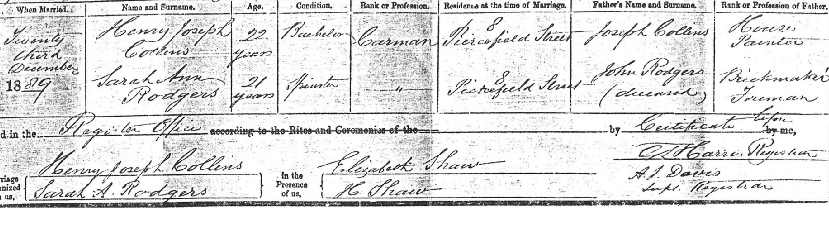 When Married. Name and Surname. Age. Condition. Rank or Profession. Residence at the time of Marriage. Father's Name and Surname. Rank or Profession of Father.
Twenty third December 1889 Henry Joseph Collins 22 years Bachelor Carman Street Joseph Collins House Painter
Sarah Ann Rodgers 21 years Spinster " Street John Rodgers (deceased) Brickmaker Foreman
in the Register Office according to the Rites and Ceremonies of the by Certificate by me,
Henry Joseph Collins
Sarah A. Rodgers
In the Presence of us,
Elizabeth Shaw
H Shaw
Registrar
A. J. Davis
Supt. Registrar